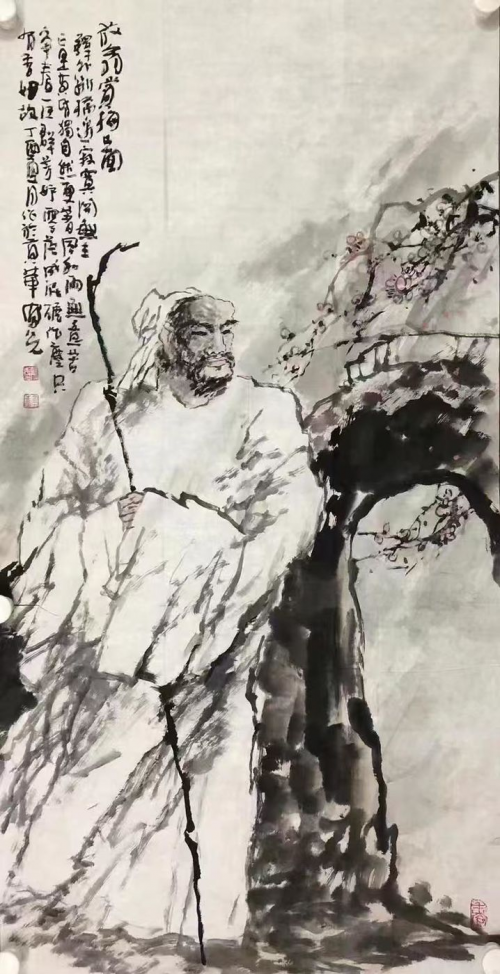 放翁賞梅之圖
驛外斷橋邊寂寞開無主
已是黃昏獨自愁更著風和雨無意苦
爭春一任群芳妒零落成泥碾作塵只
有香如故丁酉夏月作於京華